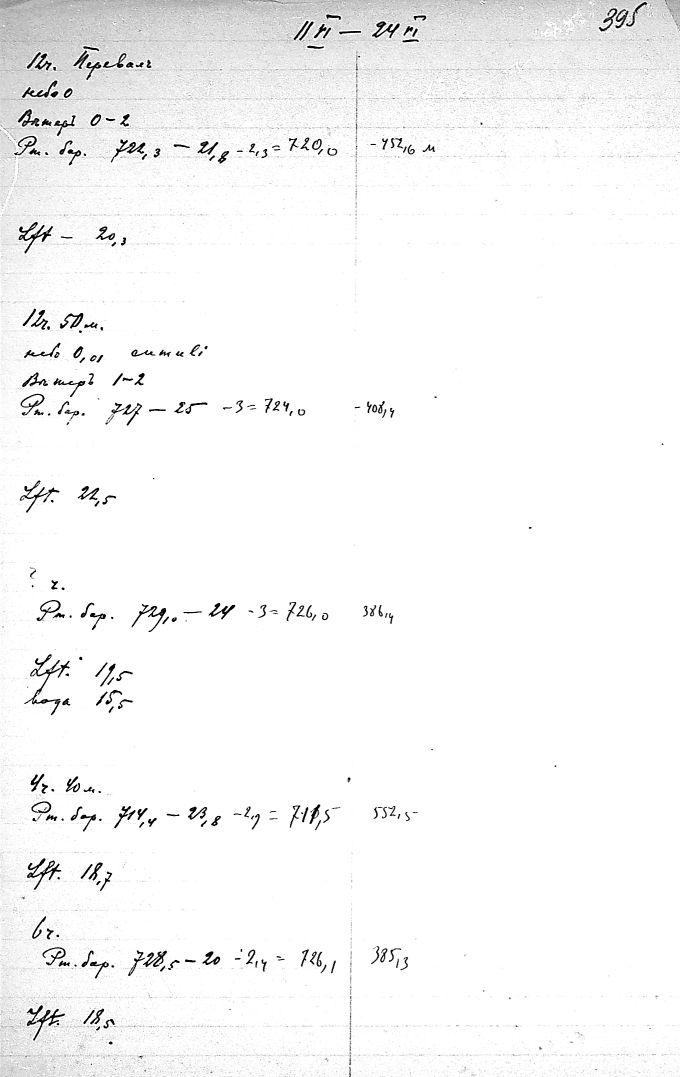 395
11 VI — 24 VI
12ч. Перевалъ
небо 0
Вѣтеръ 0-2
Рт. бар. 722,3 — 21,8 -2,3 = 720,0 -452,6 м
Lft — 20,3
12ч. 50.м.
небо 0,01 cumuli
Вѣтеръ 1-2
Рт. бар. 727 — 25 -3 = 724,0 -408,4
Lft. 22,5
? ч.
Рт. бар. 729,0 — 24 -3 = 726,0 386,4
Lft. 19,5
вода 15,5
4ч. 40м.
Рт. бар. 714,4 — 23,8 -2,9 = 711,5 552,5
Lft. 18,7
6ч.
Рт. бар. 728,5 — 20 -2,4 = 726,1 385,3
Lft. 18,5